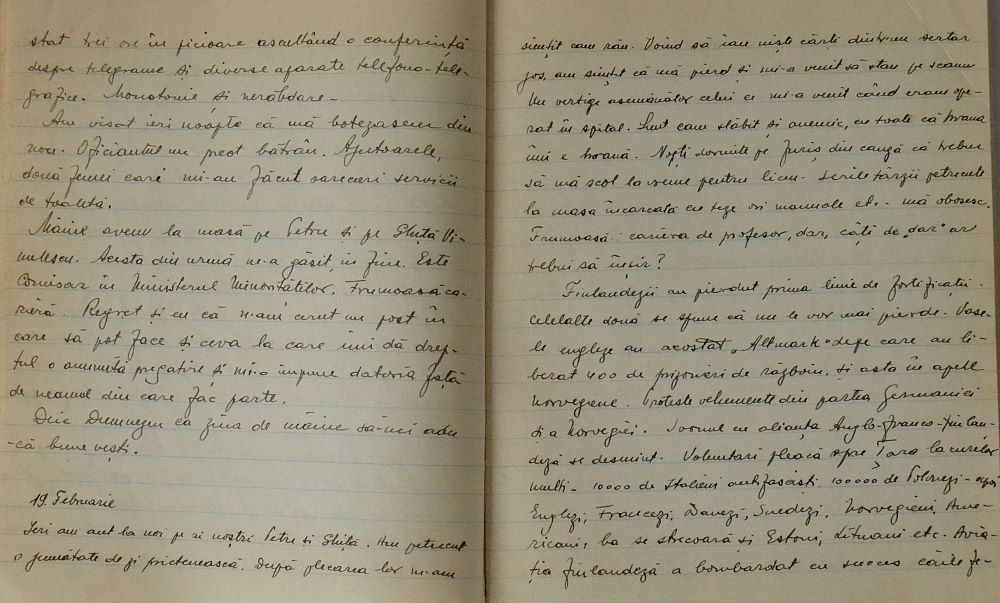 stat trei ore în picioare ascultând o conferință
despre telegrame și diverse aparate telefono-tele-
grafice. Monotonie și nerăbdare -
Am visat ieri noapte că mă botezasem din
nou. Oficiantul un preot bătrân. Ajutoarele,
două femei care mi-au făcut oarecari servicii
de toaletă.
Mâine avem la masă pe Petru și pe Ghiță Vi-
nulescu. Acesta din urmă ne-a găsit, în fine. Este
Comisar în Ministerul Minorităților. Frumoasă ca-
rieră. Regret și eu că n-am cerut un post în
care să pot face și ceva la care îmi dă drep-
tul o anumită pregătire și mi-o impune datoria față
de neamul din care fac parte.
Deie Dumnezeu ca ziua de mâine să-mi adu
-că bune vești.
19 Februarie
Ieri am avut la noi pe ai noștri Petru și Ghiță. Am petrecut
o jumătate de zi prietenească. După plecarea lor m-am
simțit cam rău. Voind să iau niște cărți dintr-un sertar
jos, am simțit că mă pierd și mi-a venit să stau pe scaun
Un vertige asemănător celui ce mi-a venit când eram ope-
rat în spital. Sunt cam slăbit și anemic, cu toate că hrana
îmi e hrană. Nopți dormite pe furiș din cauză că trebue
să mă scol la vreme pentru liceu. Serile târzii petrecute
la masa încărcată cu teze ori manuale etc. mă obosesc.
Frumoasă: cariera de profesor, dar, câți de "dar" ar
trebui să înșir?
Finlandezii au pierdut prima linie de fortificații.
Celelalte două se spune că nu le vor mai pierde. Vase-
le engleze au acostat "Altmark" depe care au li-
berat 400 de prizonieri de războiu. și asta în apele
Norvegiene. Proteste vehemente din partea Germaniei
și a Norvegiei. Svonul cu alianța Anglo-Franco-finlan-
deză se desminte. Voluntari pleacă spre Țara lacurilor
multi- 10000 de Italieni antifasciști. 100000 de Polonezi- apoi
Englezi, Francezi, Danezi, Suedezi, Norvegieni, Ame-
ricani, ba se strecoară și Estoni, Lituani etc. Avia-
ția finlandeză a bombardat cu succes căile fe-